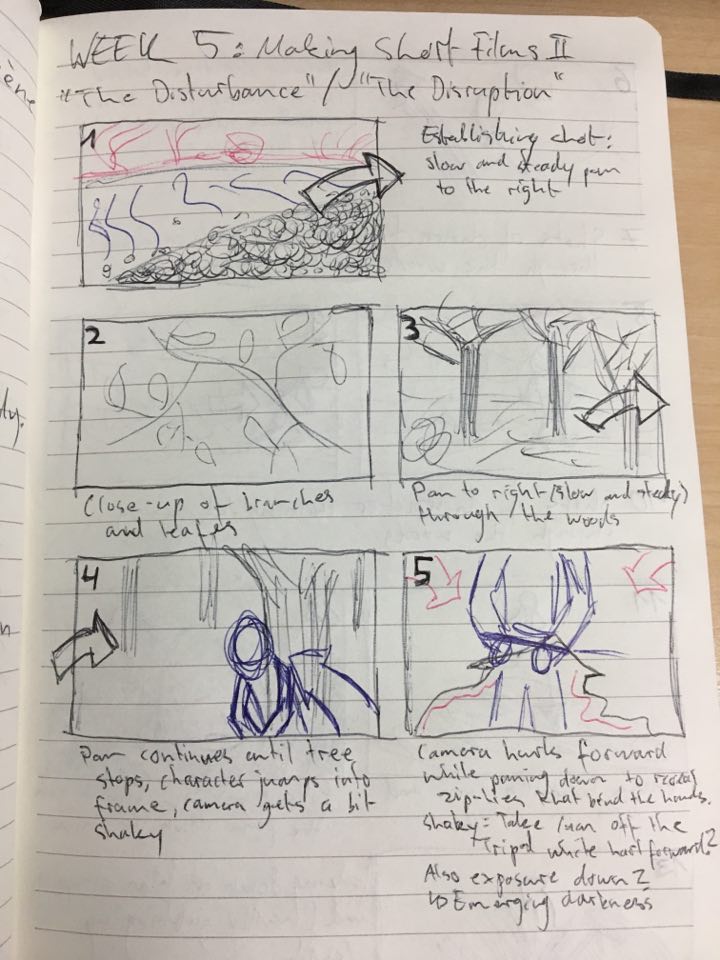 WEEK 5: Making Short Films II
"The Disturbance"/"The Disruption"
1
Establishing shot:
slow and steady pan
to the right
2
Close-up of branches
and leafes
3
Pan to right (slow and steady)
through the woods
4
Pan continues until tree
stops, character jumps into
frame, camera gets a bit
shaky
5
Camera hurks forward
while paning down to reveal
zip-lies that bind the hands.
Shaky = Take cam off the
Tripod while hurk forward?
Also exposure down?
↳ Emerging darkness